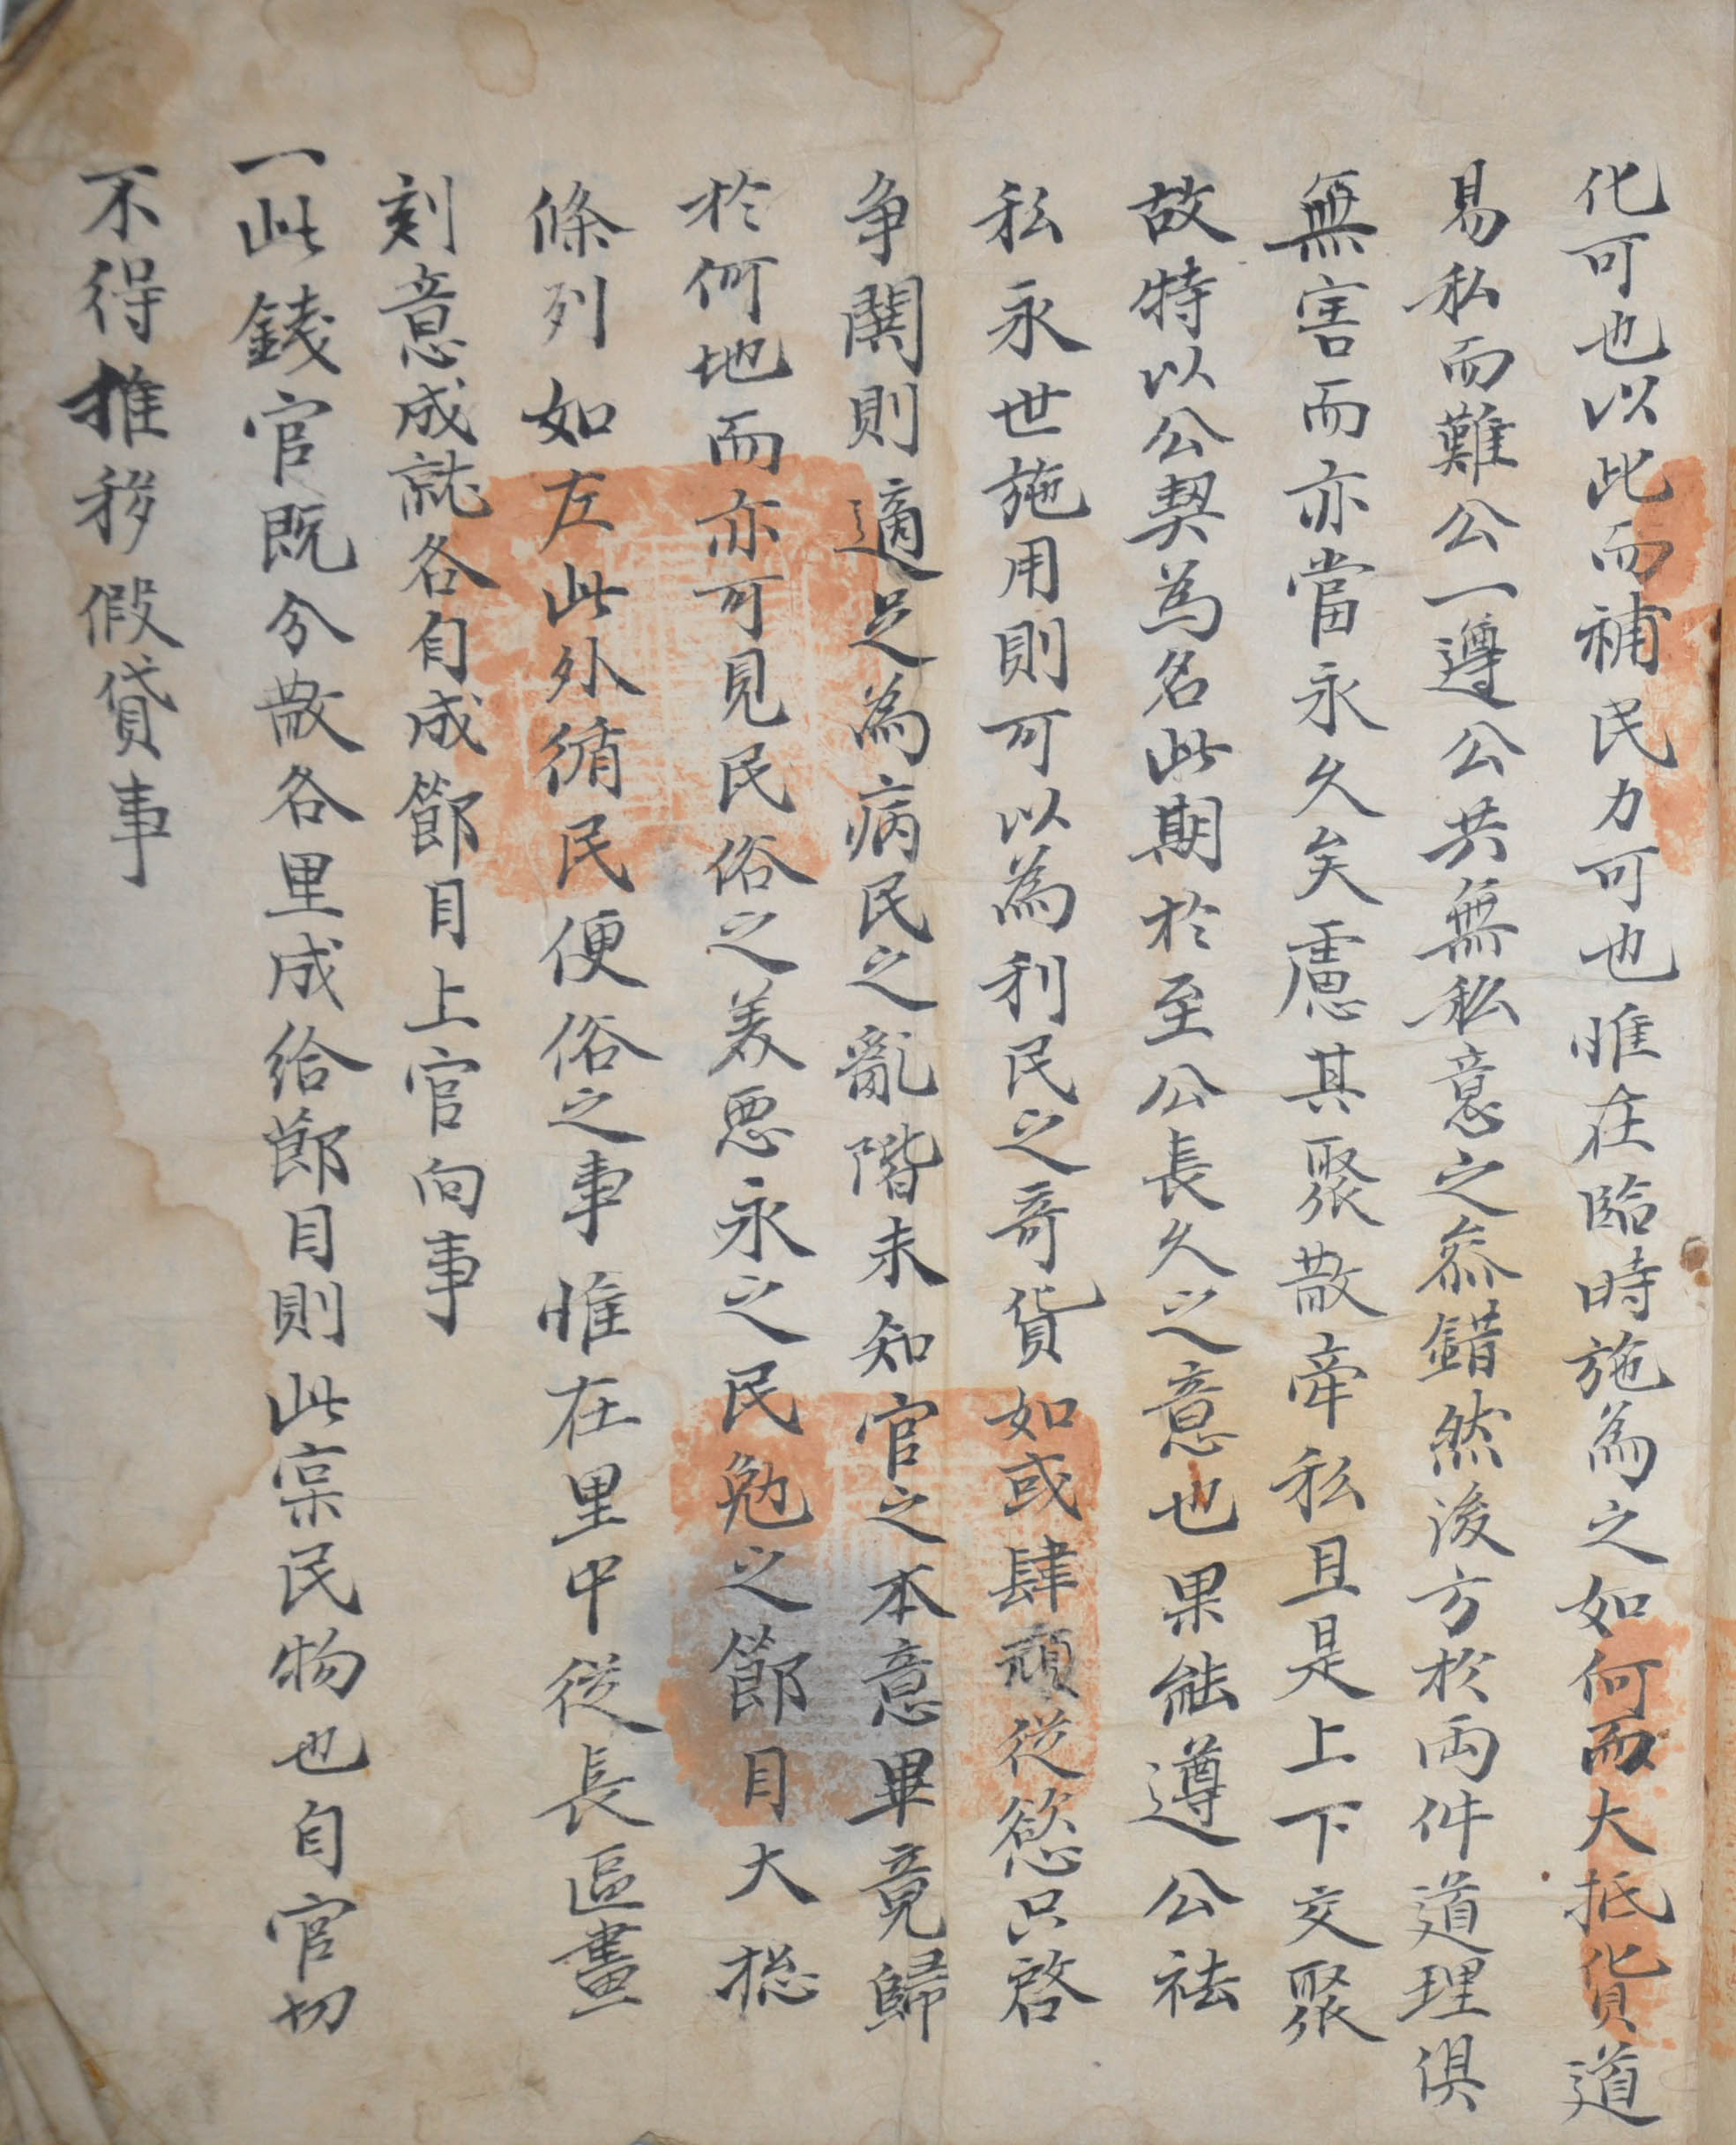 化可也以此而補民力可也惟在臨時施為之如何而大抵貨道
易私而難公一遵公共無私意之叅錯然後方於兩件道理俱
無害而亦當永久矣慮其聚散牽私且是上下交聚
故特以公契為名此期於至公長久之意也果能遵公祛
私永世施用則可以為利民之奇貨如或肆頑從慾只啓
争鬨則適足為病民之亂階未知官之本意畢竟歸
於何地而亦可見民俗之美惡永之民勉之節目大揔
條列如左此外循民便俗之事惟在里中從長區畫
刻意成就各自成節目上官向事
一此錢官既分散各里成給節目則此寔民物也自官切
不得推移假貸事